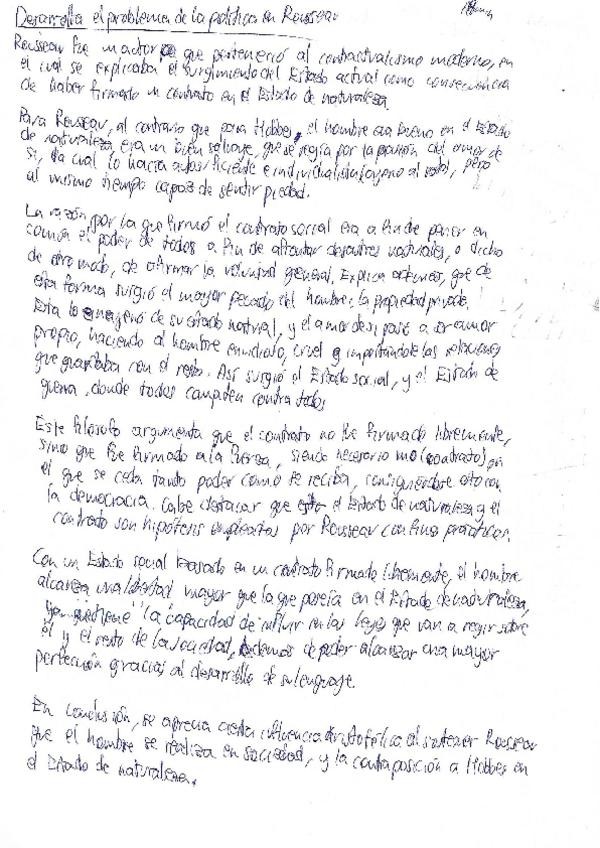 Desarrolla el problema de la política en Rousseau
Rousseau fue un autor que perteneció al contractualismo moderno, en
el cual se explicaba el surgimiento del Estado actual como consecuencia
de haber firmado un contrato en el Estado de naturaleza.
Para Rousseau, al contrario que para Hobbes, el hombre era bueno en el Estado
de naturaleza, era un buen salvaje, que se regía por la pasión del amor de
sí, la cual lo hacía autosuficiente e individualista, pero
al mismo tiempo capaz de sentir piedad.
La razón por la que firmó el contrato social era a fin de poner en
común el poder de todos a fin de afrontar desastres naturales, o dicho
de otro modo, de afirmar la voluntad general. Explica entonces, que de
esta forma surgió el mayor pecado del hombre: la propiedad privada.
Esta lo enajenó de su estado natural, y el amor de sí pasó a ser amor
propio, haciendo al hombre envidioso, cruel e importándole las relaciones
que guardaba con el resto. Así surgió el Estado social, y el Estado de
guerra, donde todos compiten contra todos
Este filósofo argumenta que el contrato no fue firmado libremente,
sino que fue firmado a la fuerza, siendo necesario uno (contrato) en
el que se ceda tanto poder como se reciba, consiguiéndose esto con
la democracia. Cabe destacar que el Estado de naturaleza y el
contrato son hipótesis empleadas por Rousseau con fines prácticos.
Con un Estado social basado en un contrato firmado libremente, el hombre
alcanza una libertad mayor que la que poseía en el Estado de naturaleza,
ya que tiene la capacidad de influir en las leyes que van a regir sobre
él y el resto de la sociedad, además de poder alcanzar una mayor
perfección gracias al desarrollo de su lenguaje.
En conclusión, se aprecia cierta influencia Aristotélica al sostener Rousseau
que el hombre se realiza en sociedad, y la contraposición a Hobbes en
el Estado de naturaleza.